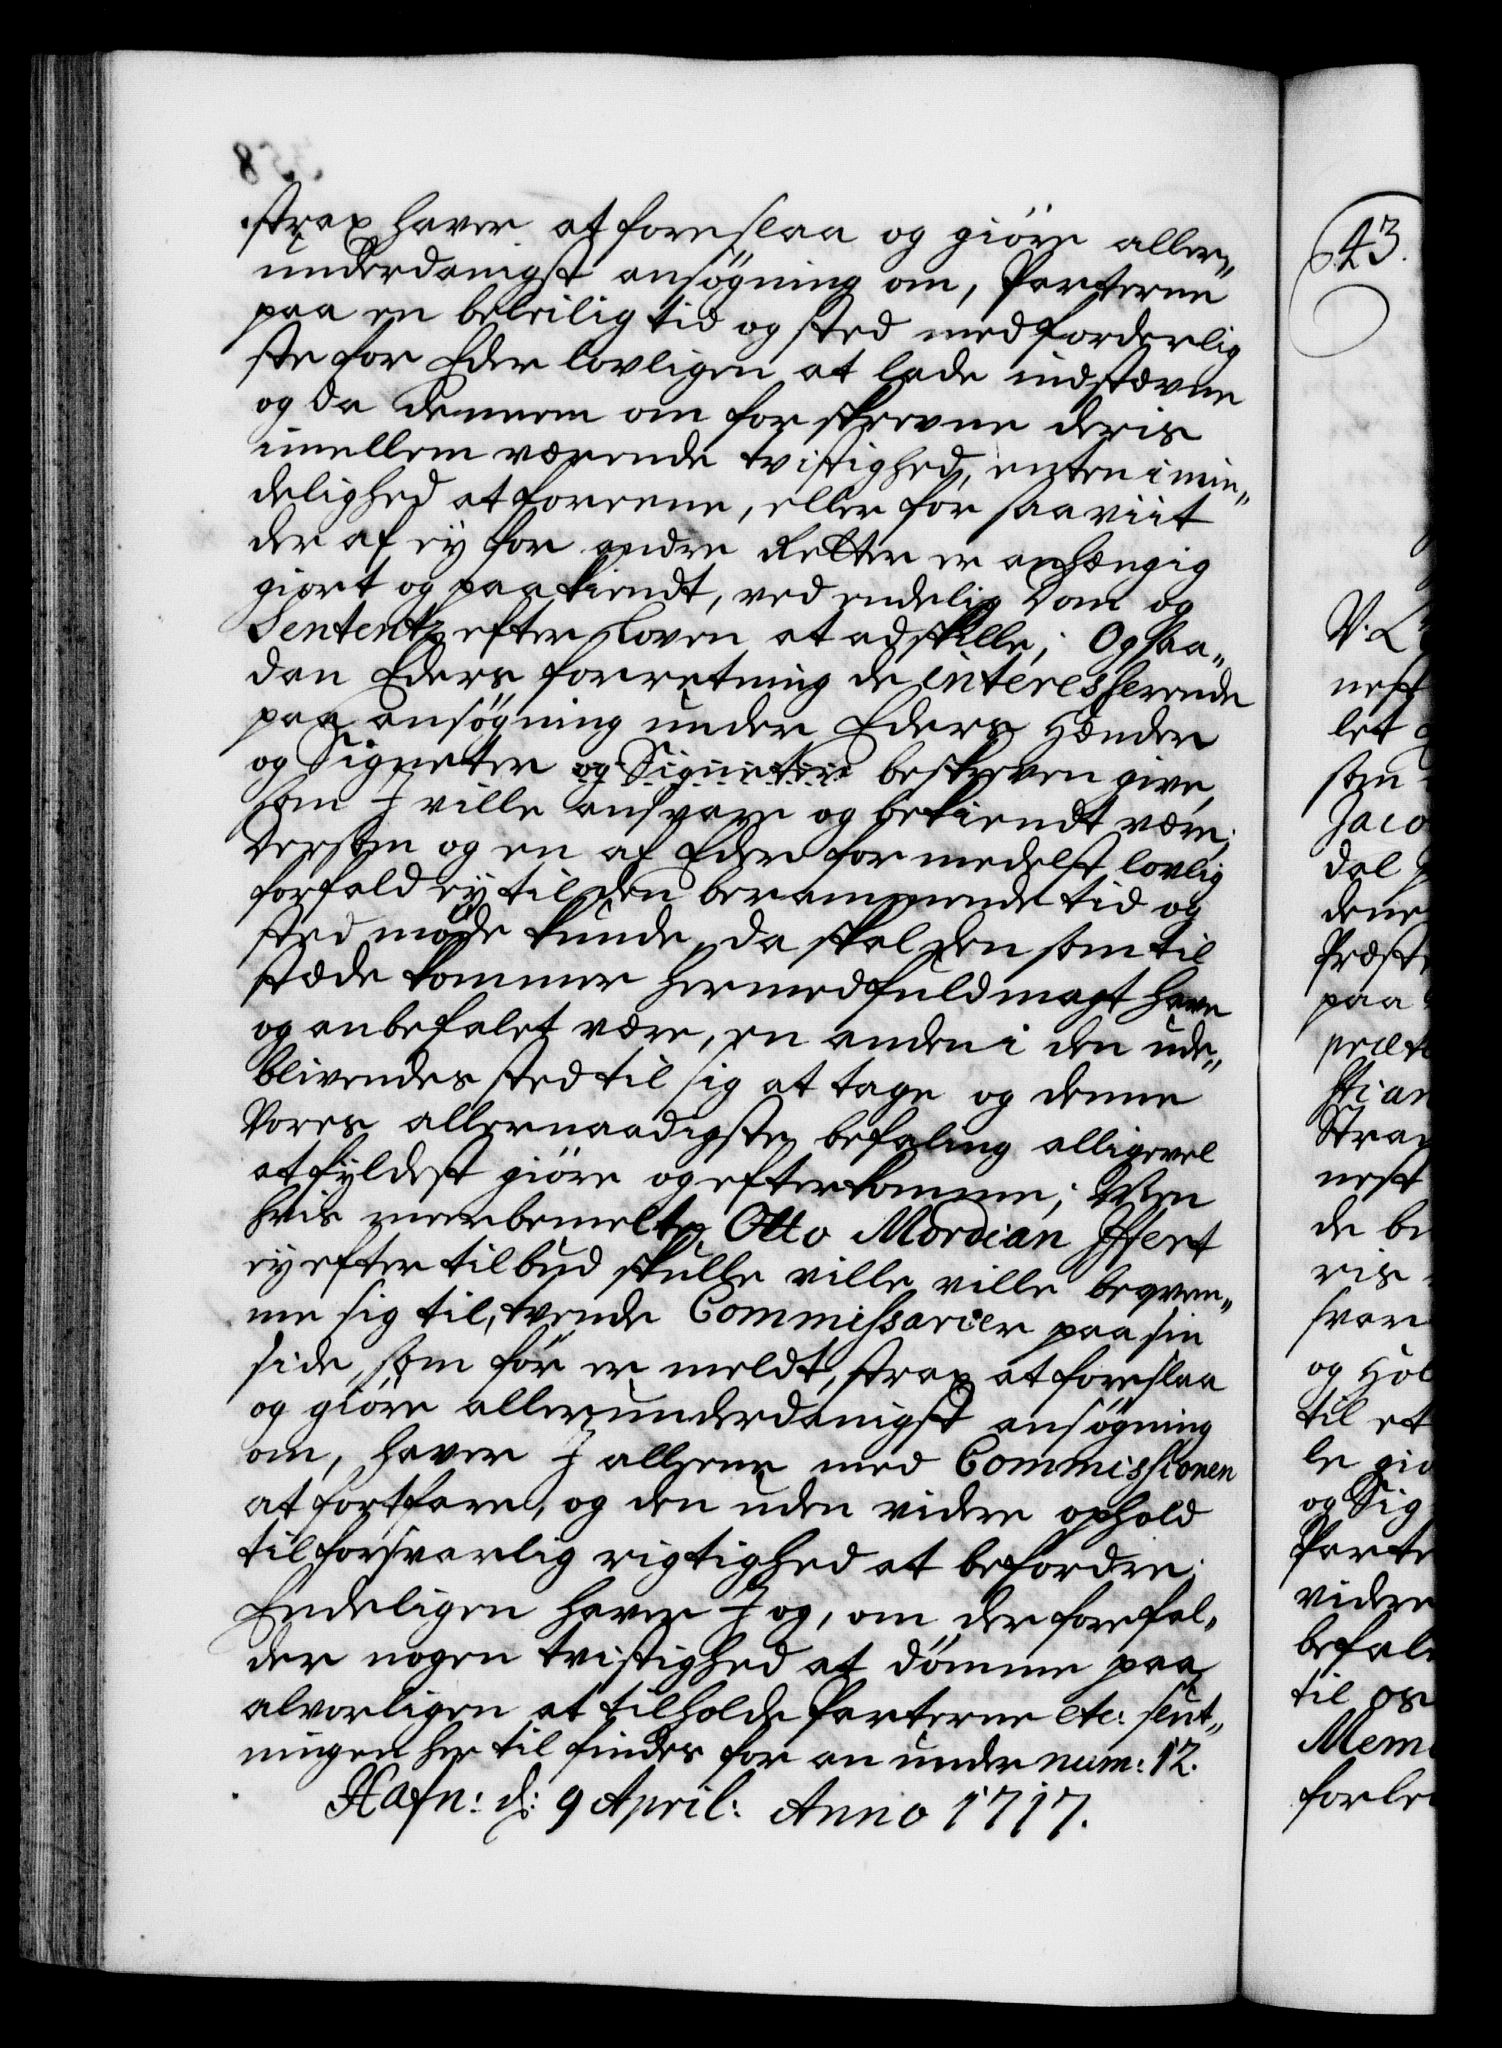 strax haver at foreslaa og giöre aller„
underdanigst ansögning om, Parterne
paa en beleilig tid og sted med forderlig
ste for Eder lovligen at lade indstævne
og da dennem om forskrevne deris
imellem værende tvistighed, enten i min„
delighed at foreene, eller for saaviit
der af ey for andre Retter er anhængig
giort og paakiendt, ved endelig Dom og
Sententz efter Loven at adskille; Og saa„
dan Eders forretning de interesserende
paa ansögning under Eders Hænder
og Signeter og Signeter beskreven give,
som I ville ansvare og bekiendt være;
Dersom og en af Eder formedelst lovlig
forfald ey til den berammende tid og
sted möde kunde, da skal den som til
stæde kommer hermed fuldmagt have
og anbefalet være, en anden i den ude„
blivendes sted til sig at tage og denne
Vores allernaadigste befaling alligevel
at fyldest giöre og efterkomme; Men
hvis merbemelte Otto Mordian Ifsert
ey efter tilbud skulle ville ville beqvem„
me sig til, tvende Commissarier paa sin
side, som för er meldt, strax at foreslaa
og giöre allerunderdanigst ansögning
om, haver I alleene med Commissionen
at fortfare, og den uden videre ophold
til forsvarlig rigtighed at befordre;
Endeligen haver I og, om der forefal„
der nogen tvistighed at dömme paa
alvorligen at tilholde Parterne etc: slut„
ningen her til findes for an under num: 12.
Hafn: d: 9 April: Anno 1717.
43.